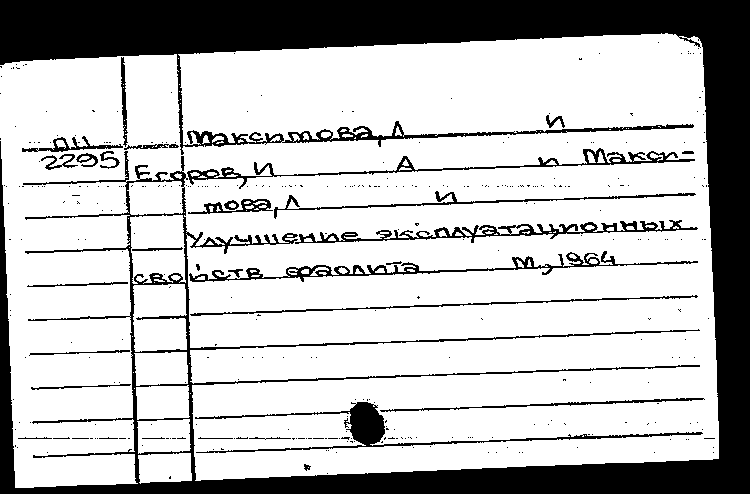 ПН Максимова, Л И
2295 Егоров, И А и Макси-
мова, Л И
Улучшение эксплуатационных
свойств фаолита М., 1964